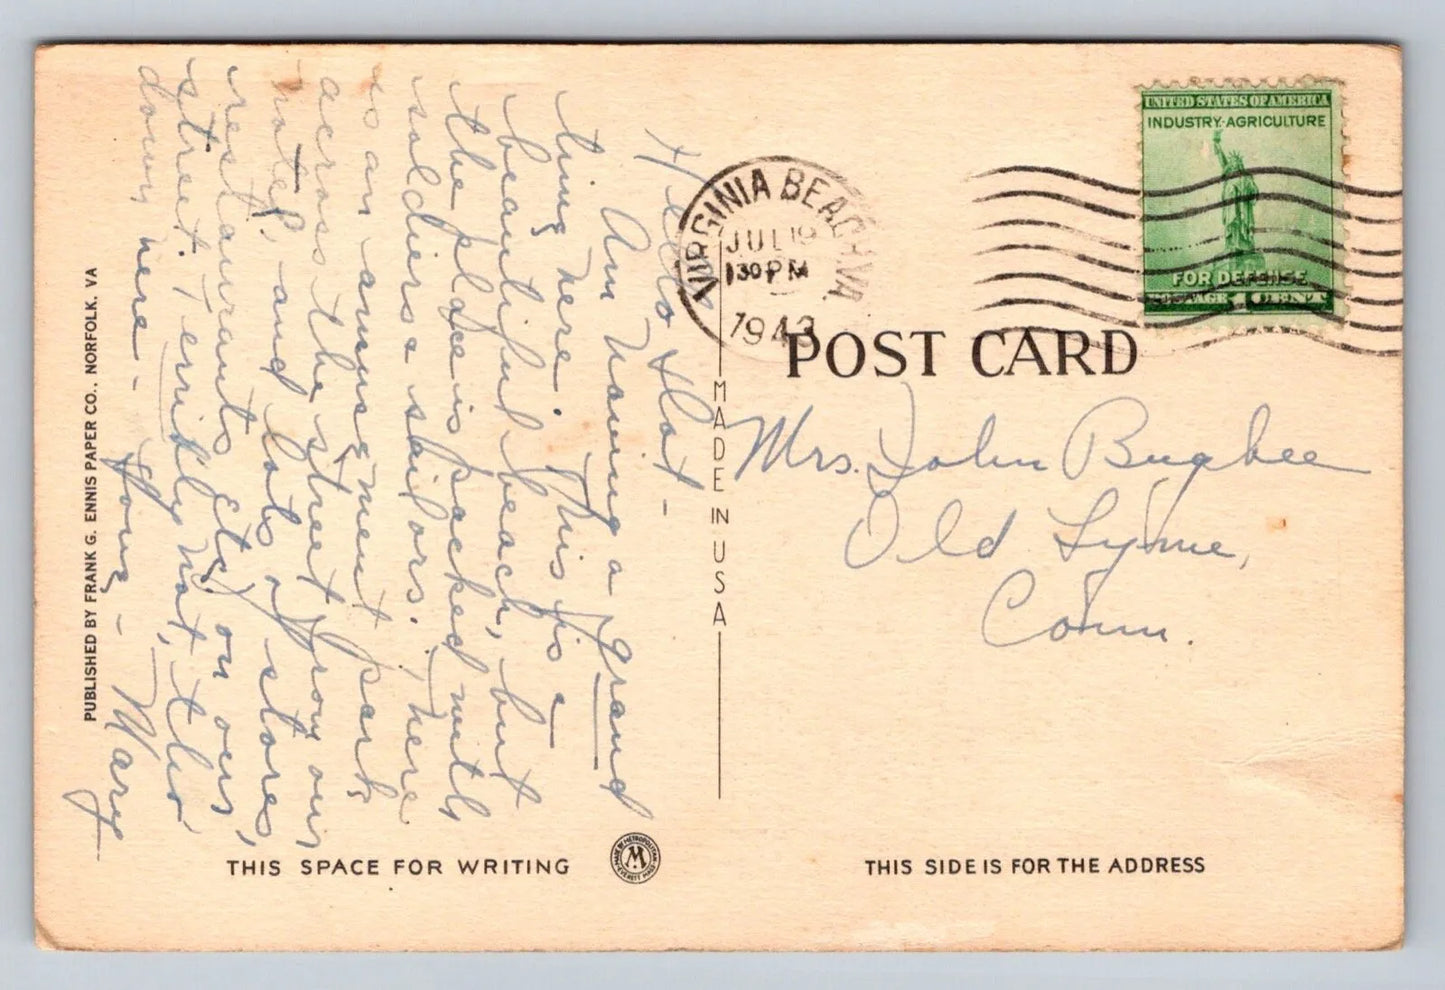 Hello Dot -
Am having a grand
time here. This is a
beautiful beach, but
the place is packed with
soldiers & sailors. There
is an amusement park
across the street from our
hotel, and lots of stores,
restaurants etc. on our
street. Terribly hot, tho'
down here -
Love - Mary
PUBLISHED BY FRANK G. ENNIS PAPER CO., NORFOLK, VA
THIS SPACE FOR WRITING
MADE BY METROPOLITAN
M
EVERETT MASS
MADE IN USA
VIRGINIA BEACH VA.
JUL 19
130 PM
1943
UNITED STATES OF AMERICA
INDUSTRY·AGRICULTURE
FOR DEFENSE
POSTAGE 1 CENT
POST CARD
Mrs. John Bugbee
Old Lyme,
Conn.
THIS SIDE IS FOR THE ADDRESS